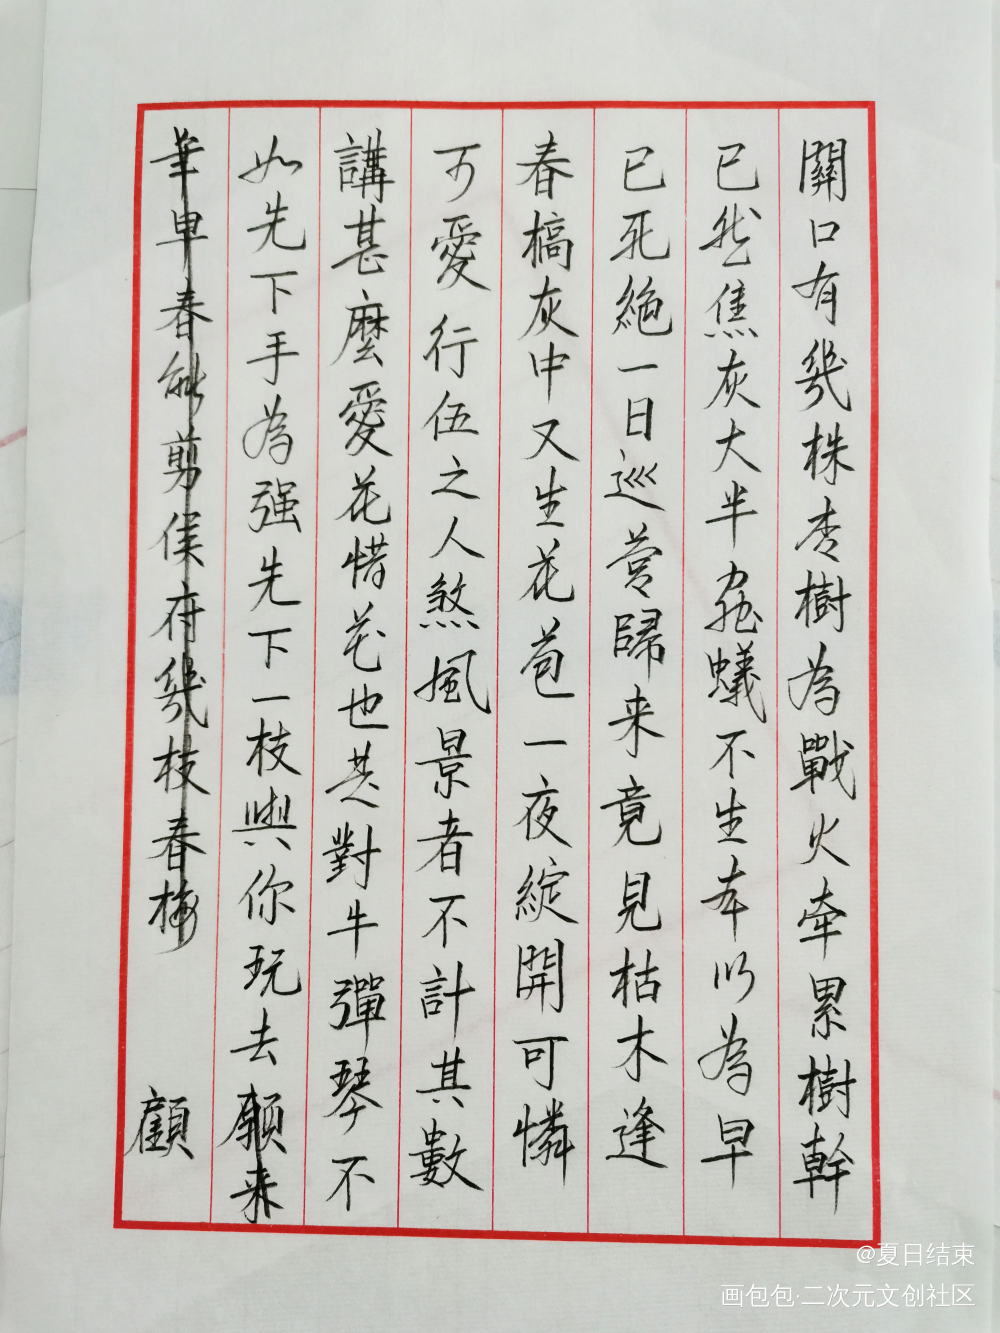 關口有幾株杏樹為戰火牽累樹幹
已然焦灰大半蟲蟻不生本以為早
已死絕一日巡營歸来竟見枯木逢
春槁灰中又生花苞一夜綻開可憐
可愛行伍之人煞風景者不計其數
講甚麼愛花惜花也是對牛彈琴不
如先下手為强先下一枝與你玩去願来
年早春能剪侯府幾枝春梅
顧
@夏日结束
画包包·二次元文创社区